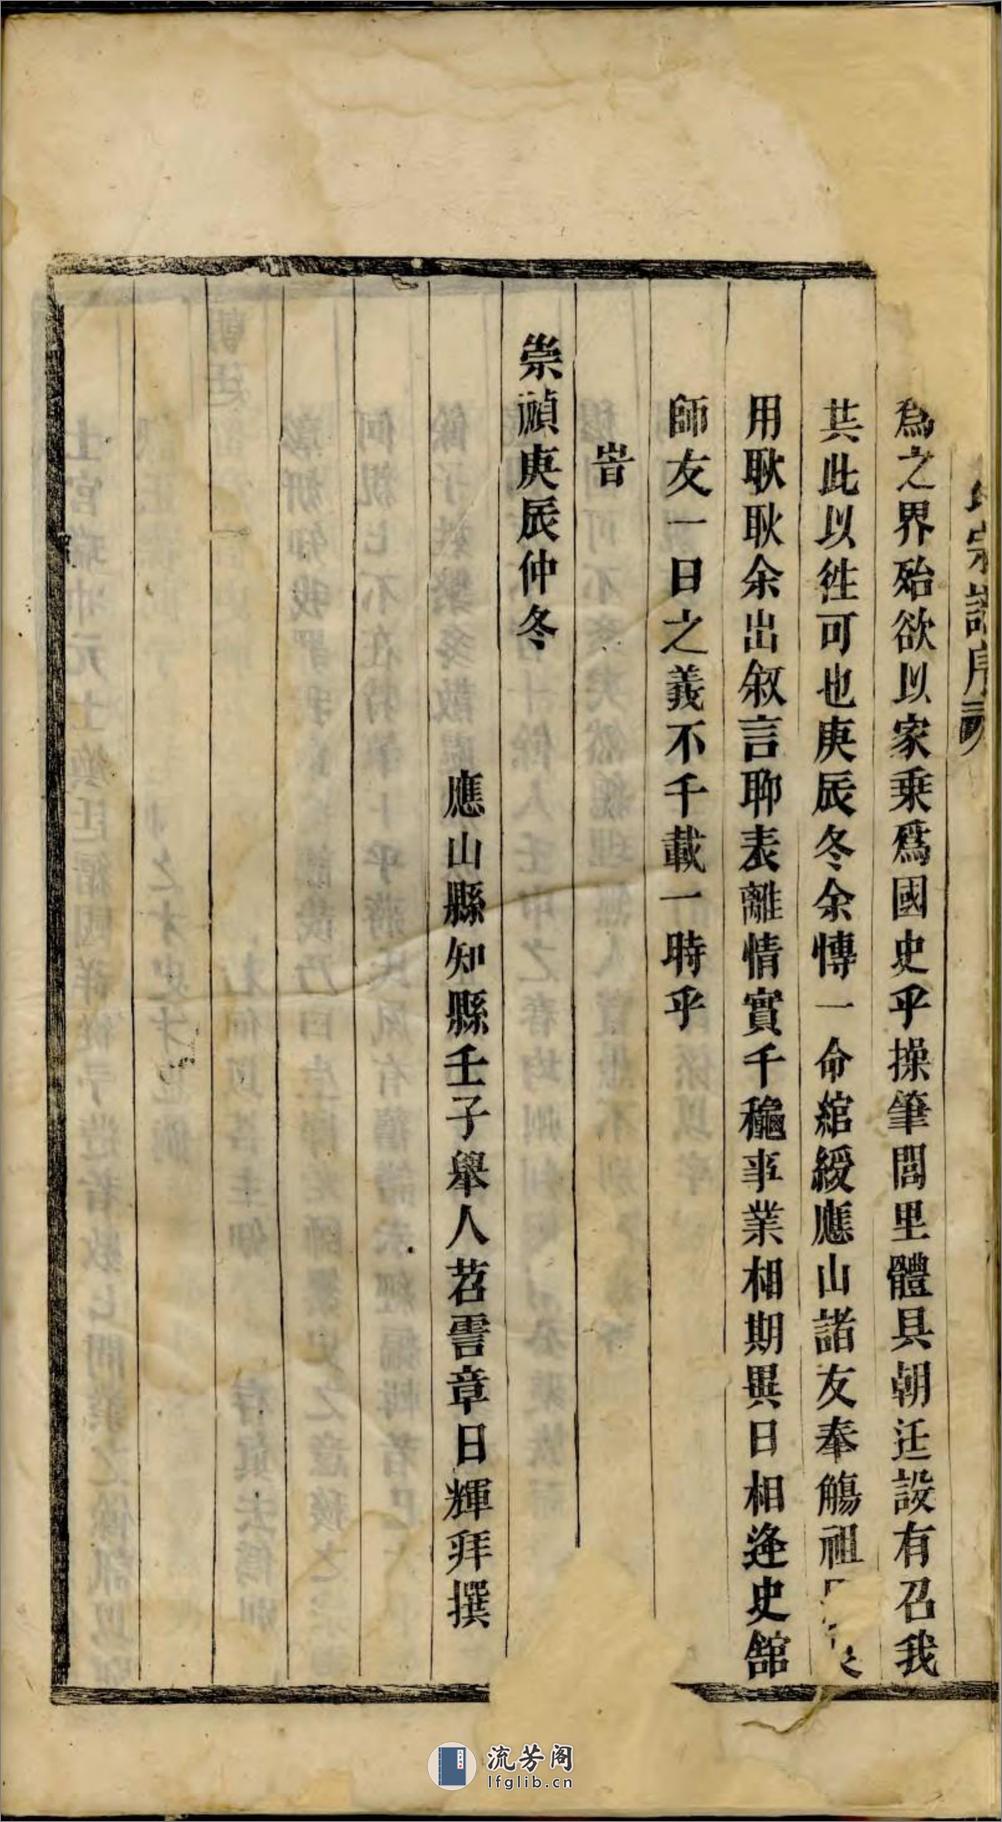 宗譜序
爲之界殆欲以家乗爲國史乎操筆閭里體具朝廷設有召我
其此以徃可也庚辰冬余慱一命綰綬應山諸友奉觴祖
用耿耿余出叙言聊表離情實千穐事業相期異日相逢史舘
師友一日之義不千載一時乎
旹
崇禎庚辰仲冬
應山縣知縣壬子舉人苕霅章日輝拜撰
流芳阁
lfglib.cn